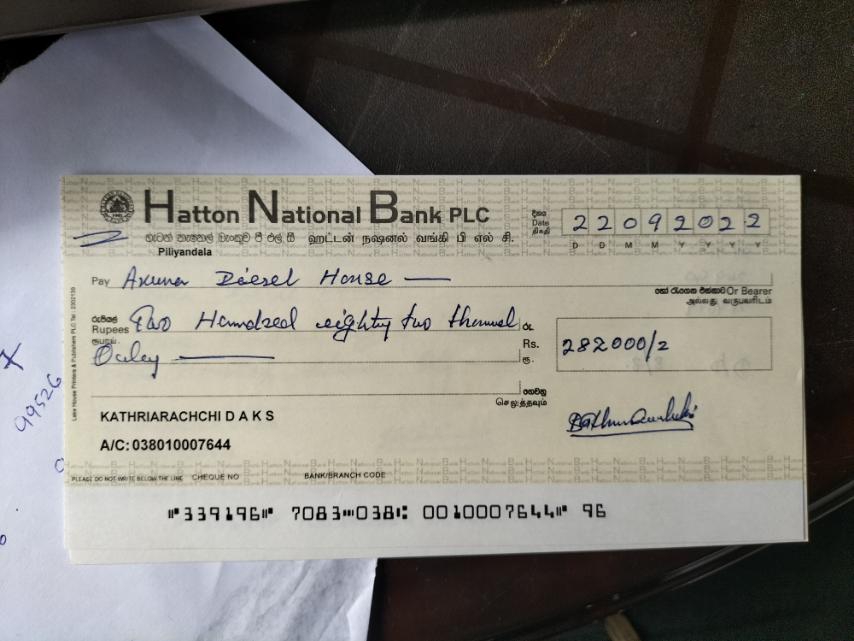 Hatton National Bank PLC
හැටන් නැෂනල් බැංකුව පී එල් සී ஹட்டன் நஷனல் வங்கி பி எல் சி.
Piliyandala
දිනය
Date
திகதி
22092022
D D M M Y Y Y Y
Pay Axuna Diesel House
හෝ රැගෙන එන්නාට Or Bearer
அல்லது வருபவரிடம்
රුපියල්
Rupees Two Hundred eighty two
ரூபாய்
Only
රු.
Rs.
ரூ.
282000/2
ගෙවනු
செலுத்தவும்
KATHRIARACHCHI D A K S
A/C: 038010007644
PLEASE DO NOT WRITE BELOW THE LINE CHEQUE NO BANK/BRANCH CODE
339196 7083 038 0010007644 96
Lake House Printers & Publishers PLC Tel : 2302139
99526